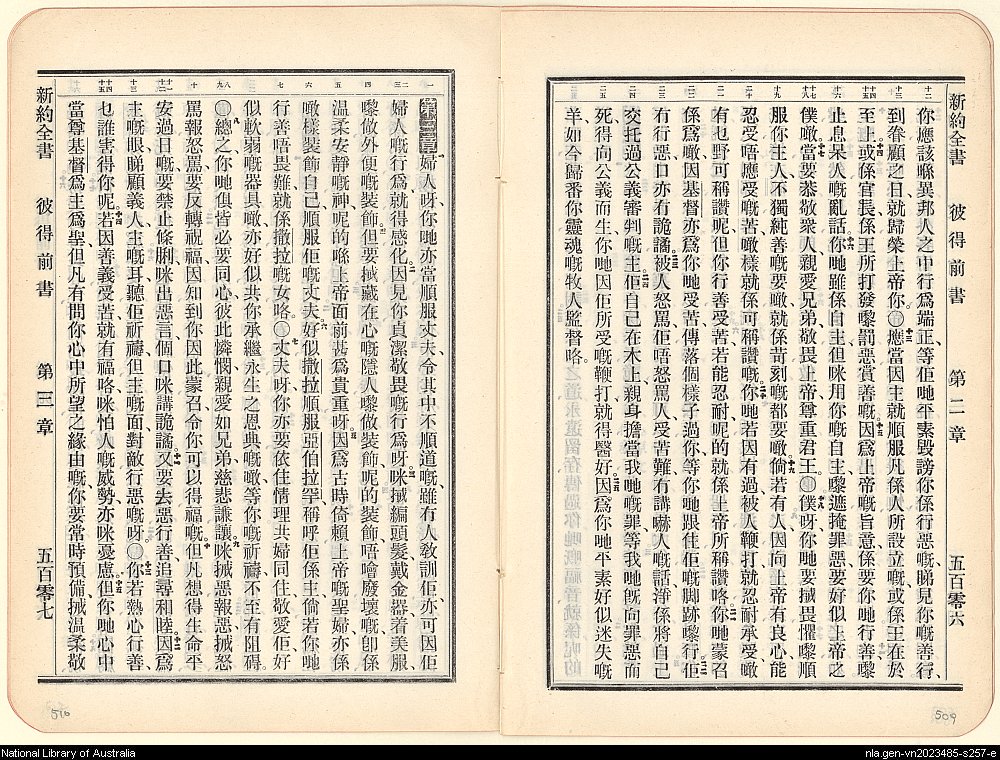 新約全書 彼得前書 第二章 五百零六
你應該喺異邦人之中行爲端正等佢哋平素毀謗你係行惡嘅睇見你嘅善行、
到眷顧之日就歸榮上帝你〇應當因主就順服凡係人所設立嘅或係王在於
至上或係官長係王所打發嚟罰惡賞善嘅因爲上帝嘅旨意係要你哋行善嚟
止息呆人嘅亂話你哋雖係自主但咪用你嘅自主嚟遮掩罪惡要好似上帝之
僕噉當要恭敬衆人親愛兄弟敬畏上帝尊重君王〇僕呀你哋要搣畏懼嚟順
服你主人不獨純善嘅要噉就係苛刻嘅都要噉倘若有人因向上帝有良心能
忍受唔應受嘅苦噉樣就係可稱讚嘅你哋若因有過被人鞭打就忍耐承受噉
有乜野可稱讚呢但你行善受苦若能忍耐呢的就係上帝所稱讚咯你哋蒙召
係爲噉因基督亦爲你哋受苦傳落個樣子過你等你哋跟住佢嘅脚跡嚟行佢
有行惡口亦有詭譎被人怒罵佢唔怒罵人受苦難冇講嚇人嘅話淨係將自己
交托過公義審判嘅主佢自己在木上親身擔當我哋嘅罪等我哋旣向罪惡而
死得向公義而生你哋因佢所受嘅鞭打就得醫好因爲你哋平素好似迷失嘅
羊如今歸番你靈魂嘅牧人監督咯
新約全書 彼得前書 第三章 五百零七
第三章婦人呀你哋亦當順服丈夫令其中不順道嘅雖有人教訓佢亦可因佢
婦人嘅行爲就得感化因見你貞潔敬畏嘅行爲呀咪搣編頭髮戴金器着美服
嚟做外便嘅裝飾但要搣藏在心嘅隱人嚟做裝飾呢的裝飾唔噲廢壞嘅卽係
温柔安靜嘅神呢的喺上帝面前甚爲貴重呀因爲古時倚賴上帝嘅聖婦亦係
噉樣裝飾自己順服佢嘅丈夫好似撒拉順服亞伯拉罕稱呼佢係主倘若你哋
行善唔畏難就係撒拉嘅女咯〇丈夫呀你亦要依住情理共婦同住敬愛佢好
似軟弱嘅器具噉亦好似共你承繼永生之恩典嘅噉等你嘅祈禱不至有阻碍
〇總之你哋俱皆必要同心彼此憐憫親愛如兄弟慈悲謙讓咪搣惡報惡搣怒
罵報怒罵要反轉祝福因知到你因此蒙召令你可以得福嘅但凡想得生命平
安過日嘅要禁止條脷咪出惡言個口咪講詭譎又要去惡行善追尋和睦因爲
主嘅眼睇顧義人主嘅耳聽佢祈禱但主嘅面對敵行惡嘅呀〇你若熱心行善
乜誰害得你呢若因善義受苦就有福咯咪怕人嘅威勢亦咪憂慮但你哋心中
當尊基督爲主爲聖但凡有問你心中所望之緣由嘅你要常時預備搣温柔敬
510
509
National Library of Australia
nla.gen-vn2023485-s257-e